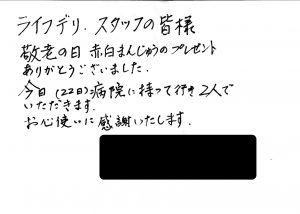 ライフデリ.スタッフの皆様
敬老の日 赤白まんじゅうのプレゼント
ありがとうございました.
今日(22日)病院に持って行き2人で
いただきます.
お心使いに感謝いたします.